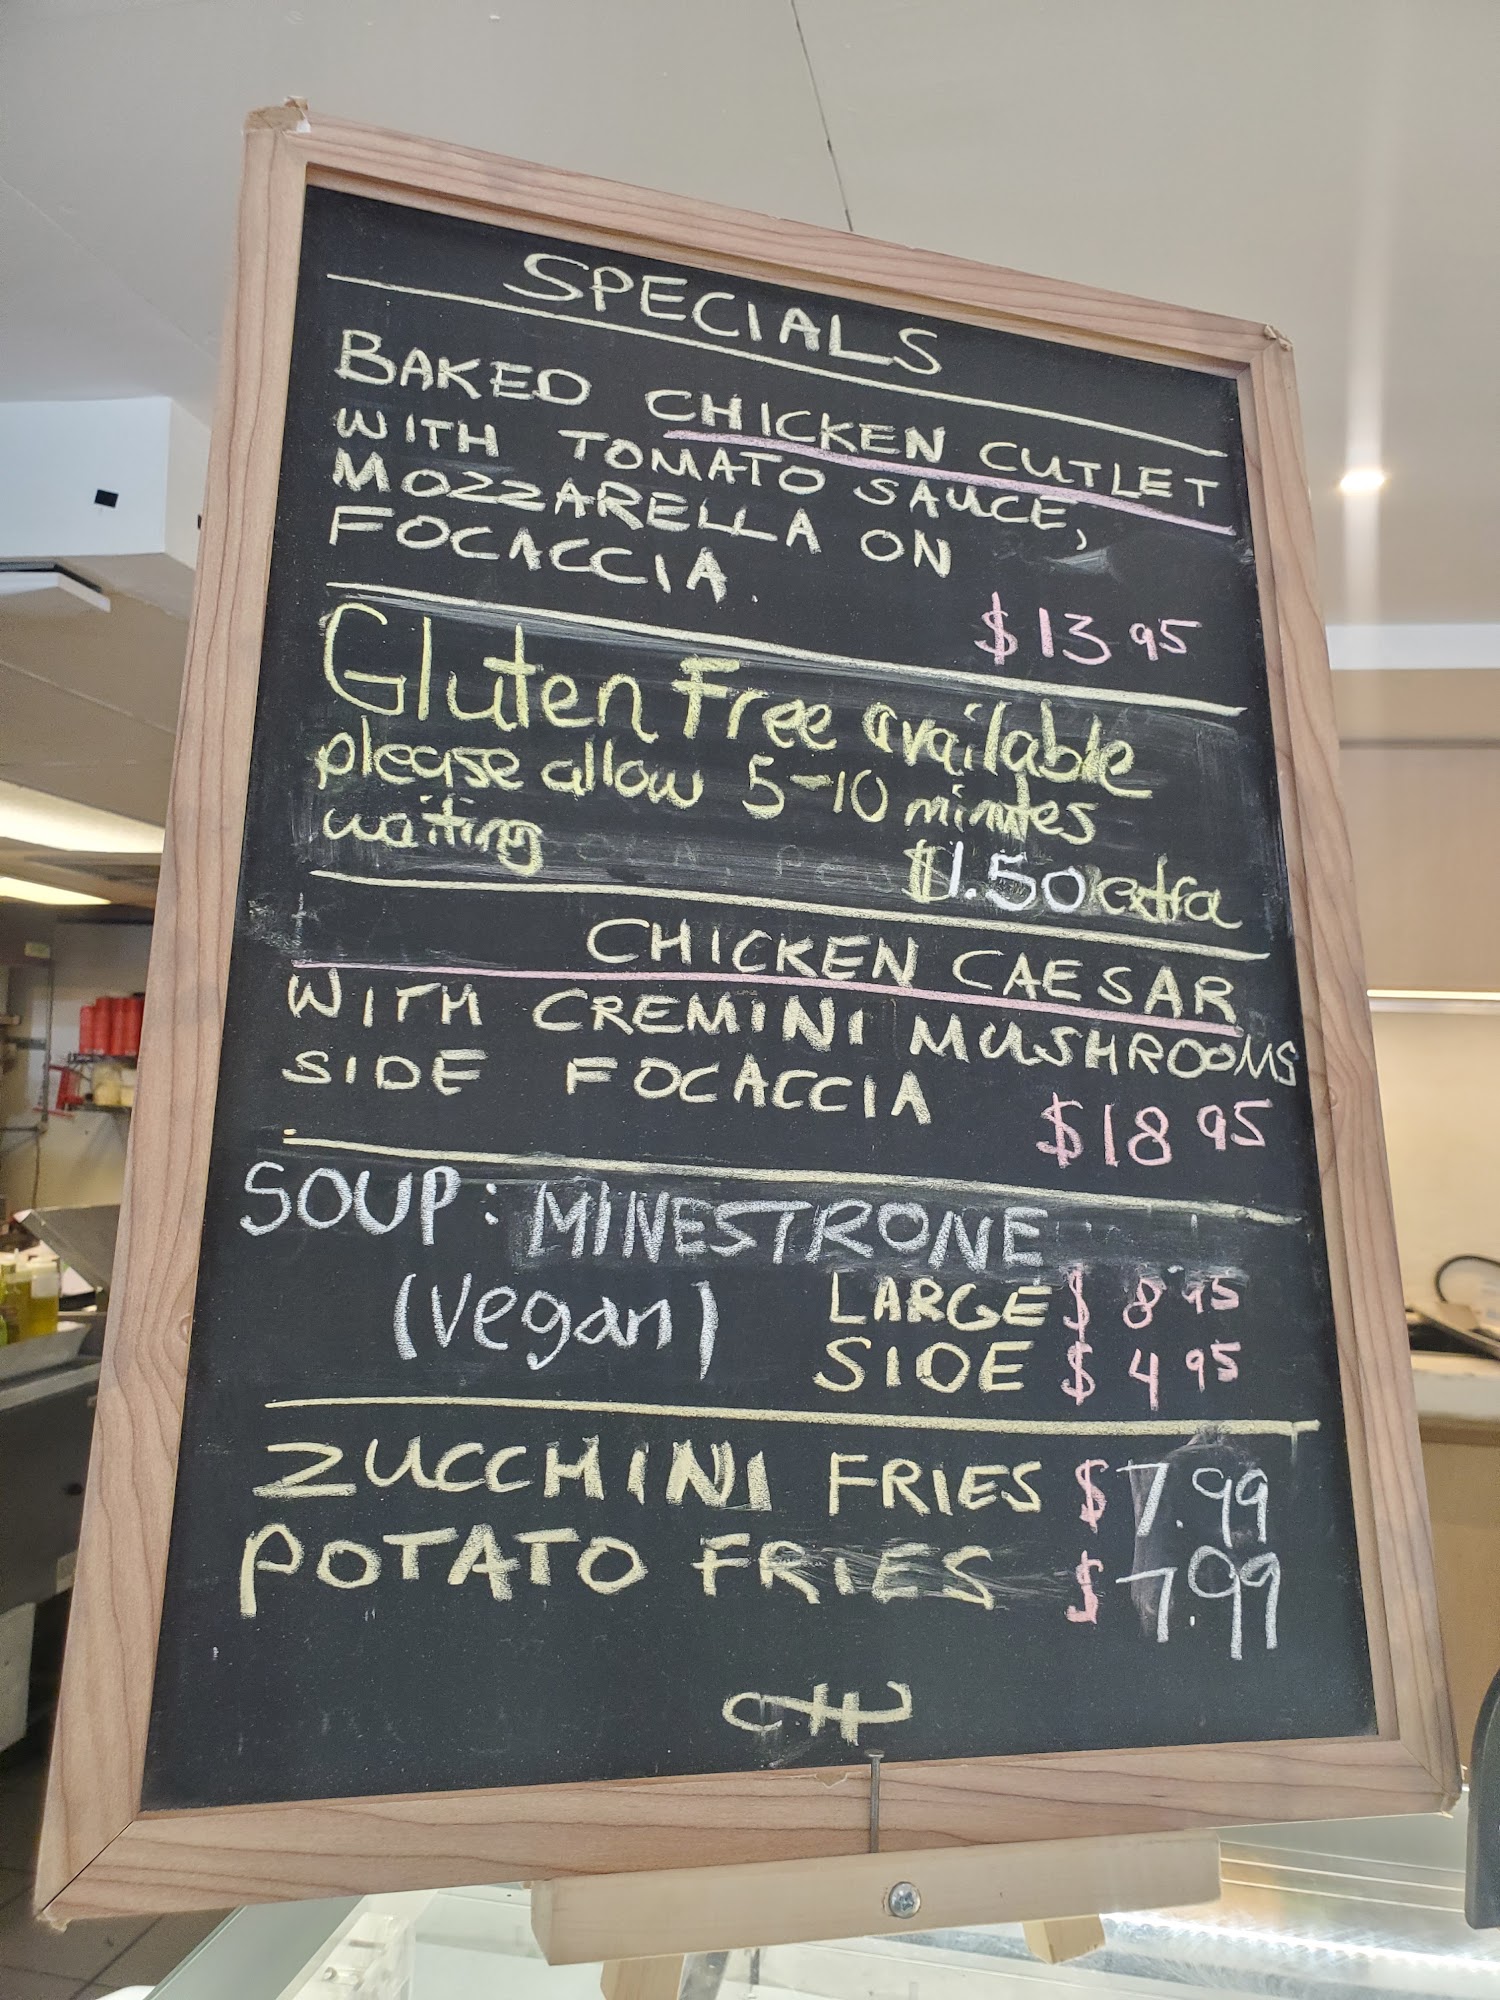 SPECIALS
BAKED CHICKEN CUTLET
WITH TOMATO SAUCE,
MOZZARELLA ON
FOCACCIA.
$13 95
Gluten Free available
please allow 5-10 minutes
waiting
$1.50 extra
CHICKEN CAESAR
WITH CREMINI MUSHROOMS
SIDE FOCACCIA
$18 95
SOUP: MINESTRONE
(Vegan) LARGE $ 8 95
SIDE $ 4 95
ZUCCHINI FRIES $7.99
POTATO FRIES $7.99